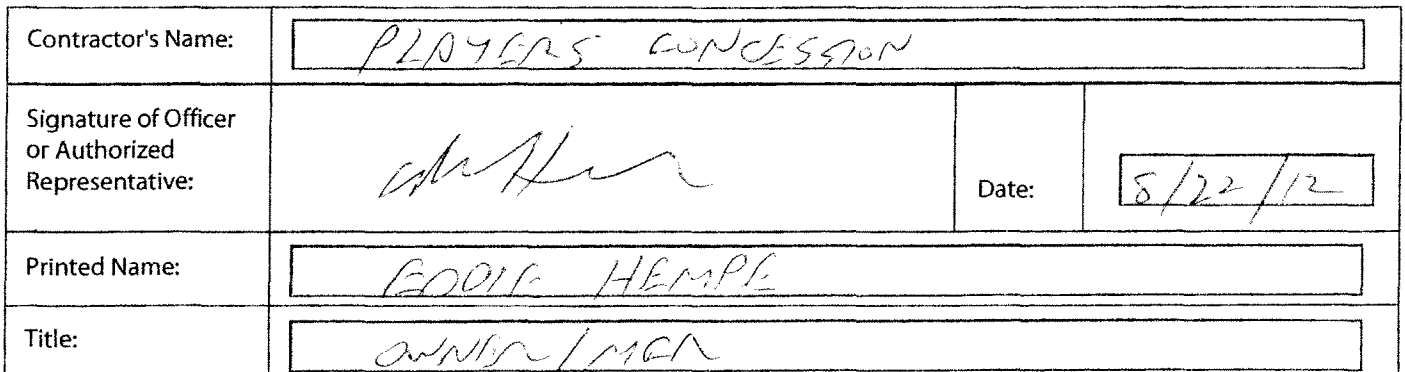 Contractor's Name: PLAYERS CONCESSION
Signature of Officer
or Authorized
Representative:
Date: 8/22/12
Printed Name: EDDIE HEMPE
Title: OWNER/MGR